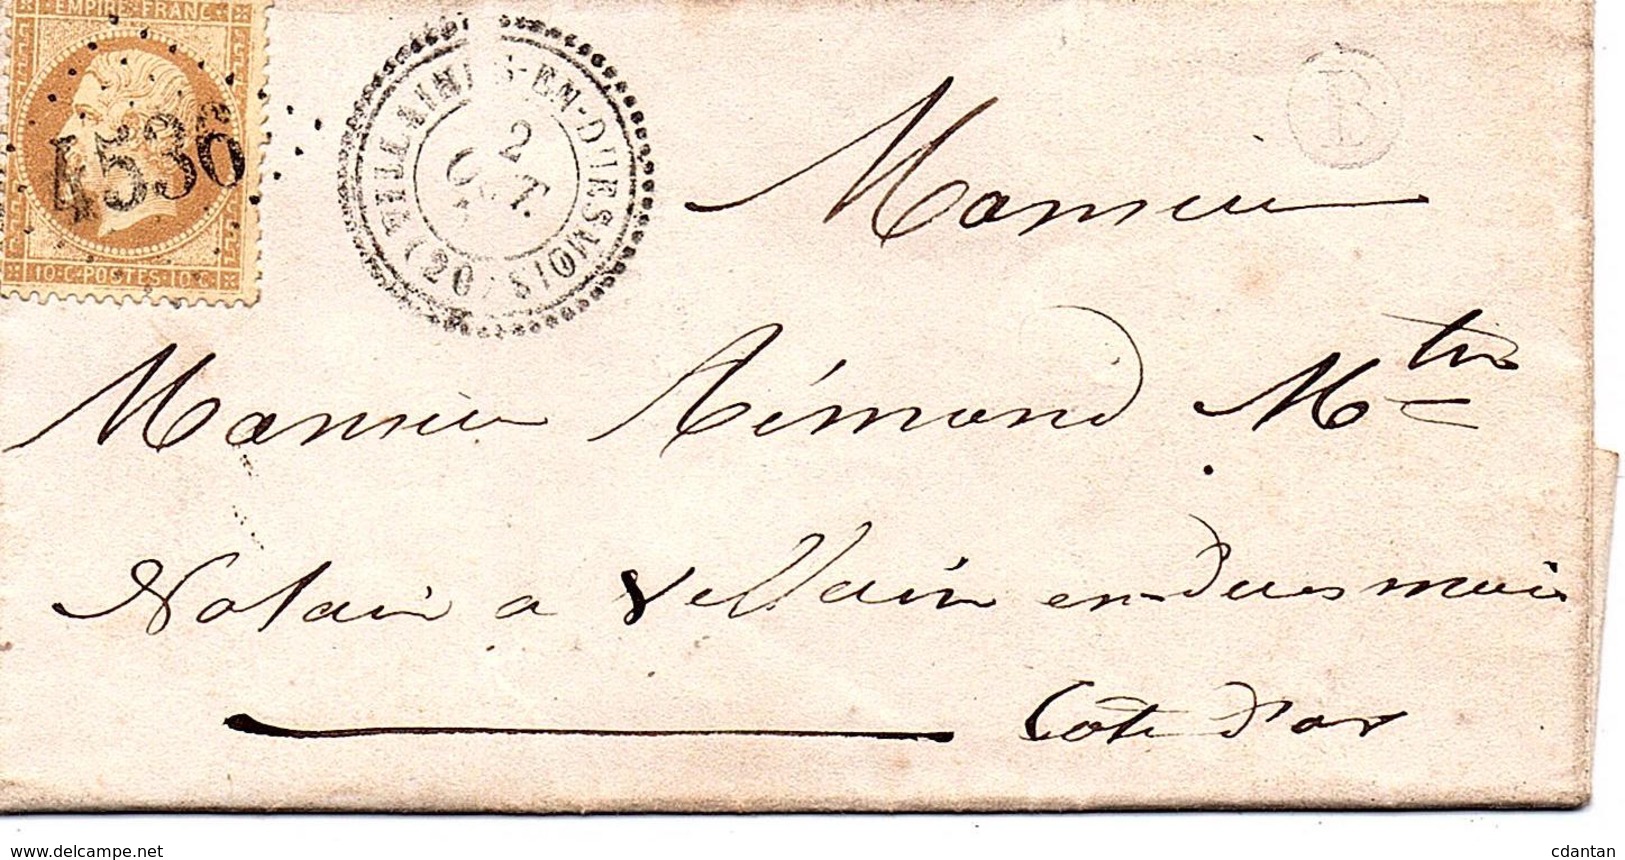 EMPIRE FRANC
4536
10·C·POSTES·10·C
VILLAINES-EN-DUESMOIS
2
OCT.
(20)
B
Monsieur
Monsieur Rémond Mtre
Notair a Vellain en-Duesmois
Côte d'or
www.delcampe.net
cdantan